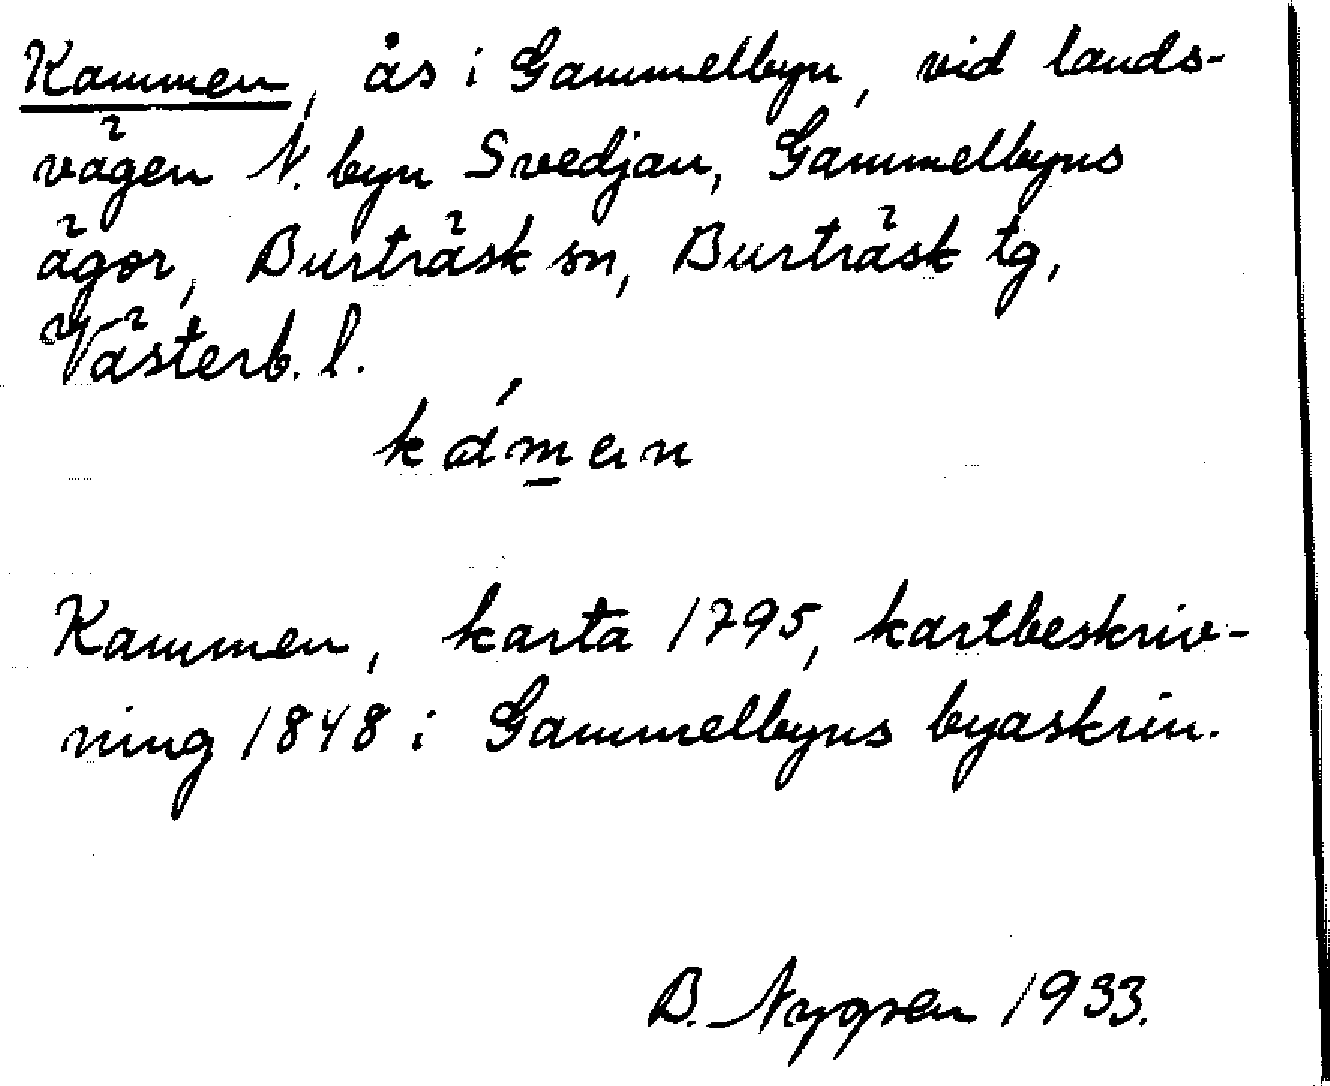 Kammen, ås i Gammelbyn, vid lands-
vägen N. byn Svedjan, Gammelbyns
ägor, Burträsk sn, Burträsk tg,
Västerb. l.
káman
Kammen, karta 1795, kartbeskriv-
ning 1848 i Gammelbyns byaskrin.
B. Nygren 1933.